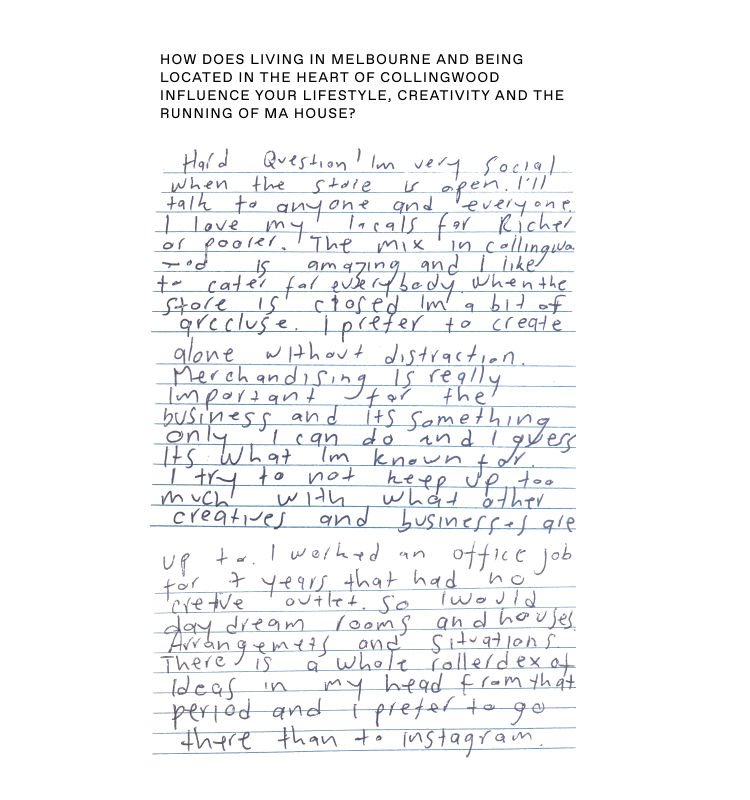 HOW DOES LIVING IN MELBOURNE AND BEING
LOCATED IN THE HEART OF COLLINGWOOD
INFLUENCE YOUR LIFESTYLE, CREATIVITY AND THE
RUNNING OF MA HOUSE?
Hard Question! Im very social
when the store is open. I'll
talk to anyone and everyone.
I love my locals for Richer
or pooler. The mix in collingwo
-od is amazing and I like
to cater for everybody. When the
store is closed Im a bit of
a recluse. I prefer to create
alone without distraction.
Merchandising is really
important for the
business and its something
only I can do and I guess
Its what Im known for.
I try to not keep up too
much with what other
creatives and businesses are
up to. I worked an office job
for 7 years that had no
cretive outlet. So I would
day dream rooms and houses
Arrangements and Situations.
There is a whole rollerdex of
Ideas in my head from that
period and I prefer to go
there than to instagram.